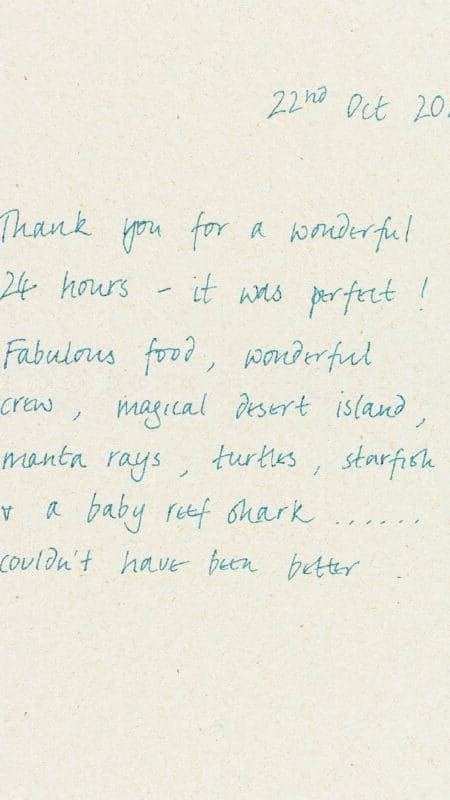 22nd Oct 20
Thank you for a wonderful
24 hours - it was perfect !
Fabulous food, wonderful
crew, magical desert island,
manta rays, turtles, starfish
& a baby reef shark ......
couldn't have been better .